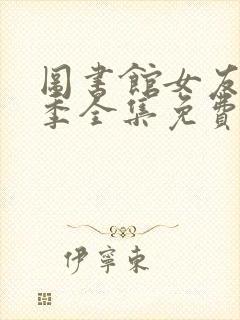 圖書館女友
季全集免費
伊寧東